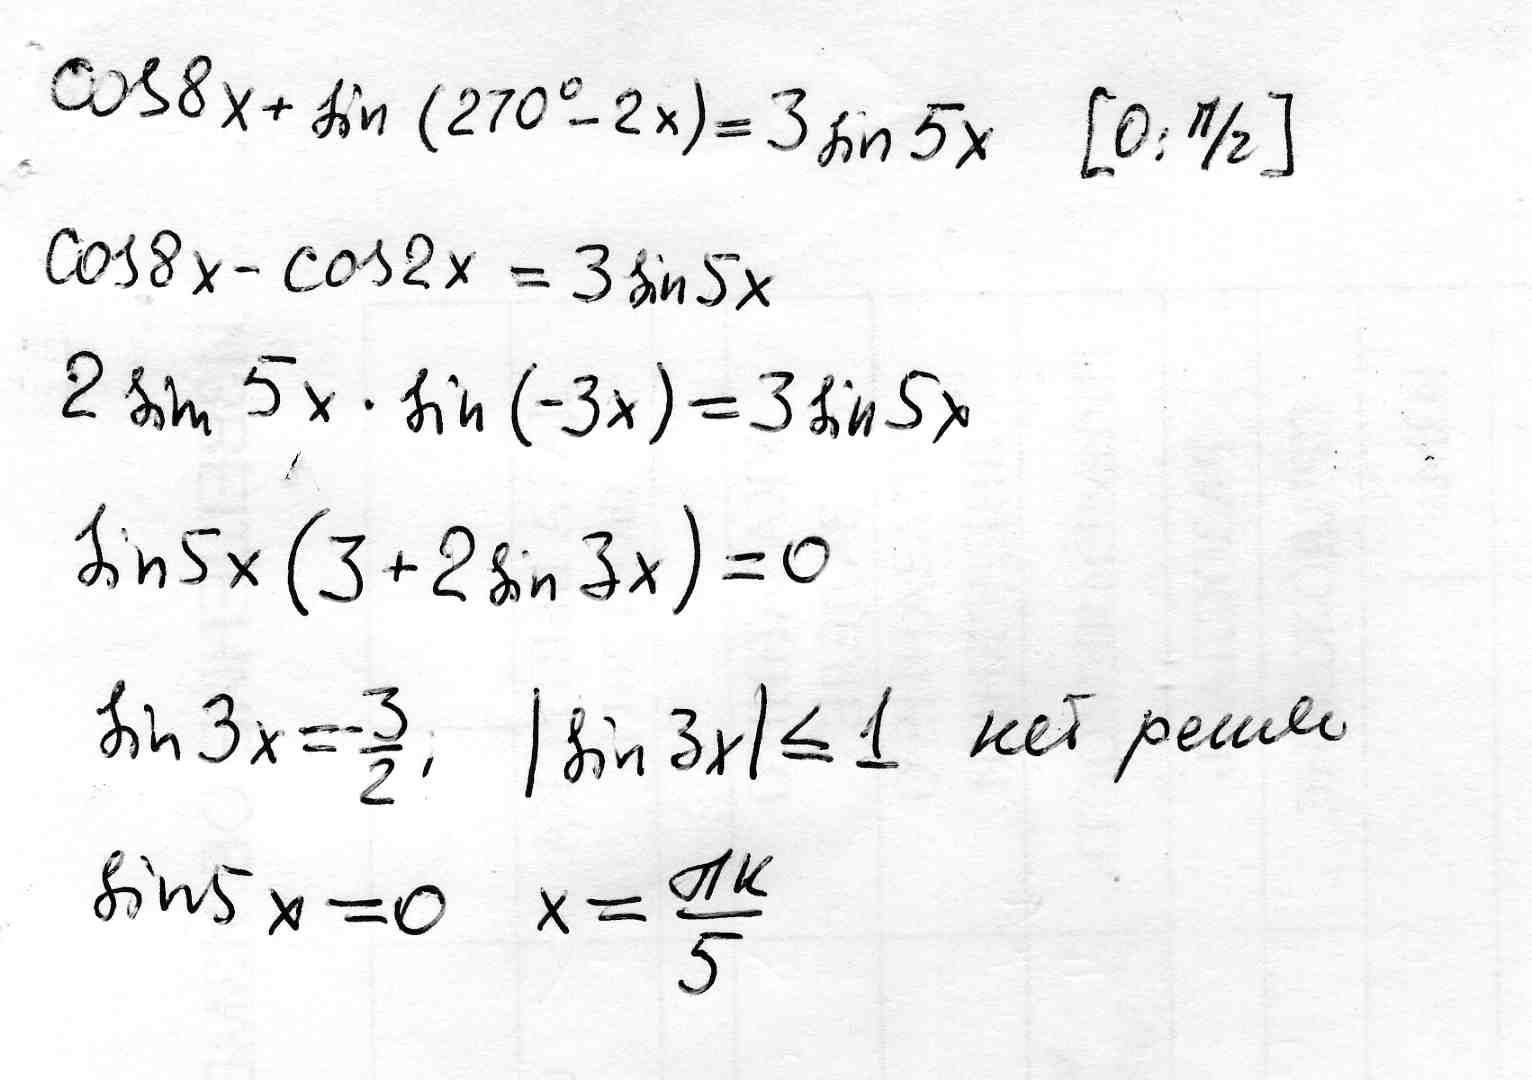 cos8x + sin (270° - 2x) = 3 sin 5x [0; π/2]
cos8x - cos2x = 3 sin5x
2 sin 5x · sin (-3x) = 3 sin5x
sin5x (3 + 2 sin 3x) = 0
sin 3x = -3/2; |sin 3x| ≤ 1 нет
sin5x = 0 x = πk/5